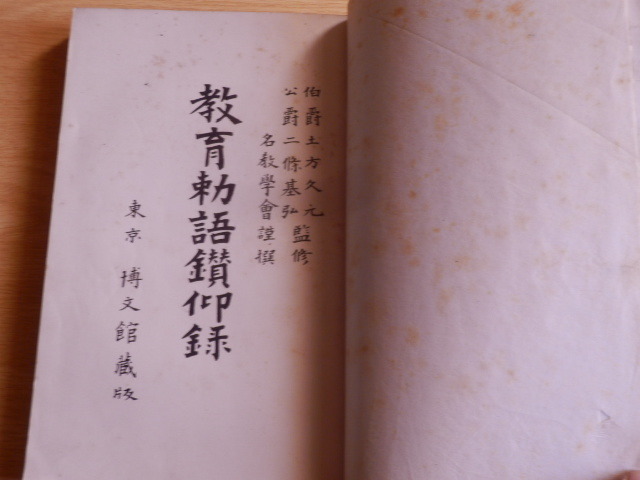 伯爵土方久元
公爵二條基弘
監修
名教學會謹撰
教育勅語鑚仰録
東京 博文館藏版